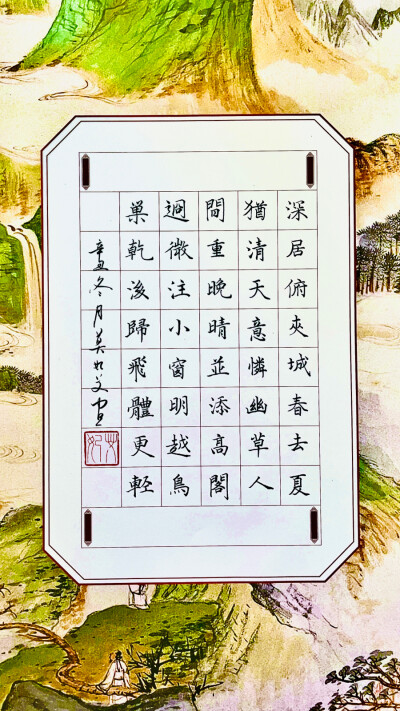 深居俯夾城春去夏
猶清天意憐幽草人
間重晚晴並添高閣
逈微注小窗明越鳥
巢乾後歸飛體更輕
辛丑冬月莫如文書